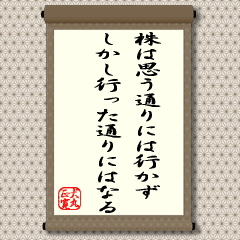 株は思う通りには行かず
しかし行った通りにはなる
大丸
正富